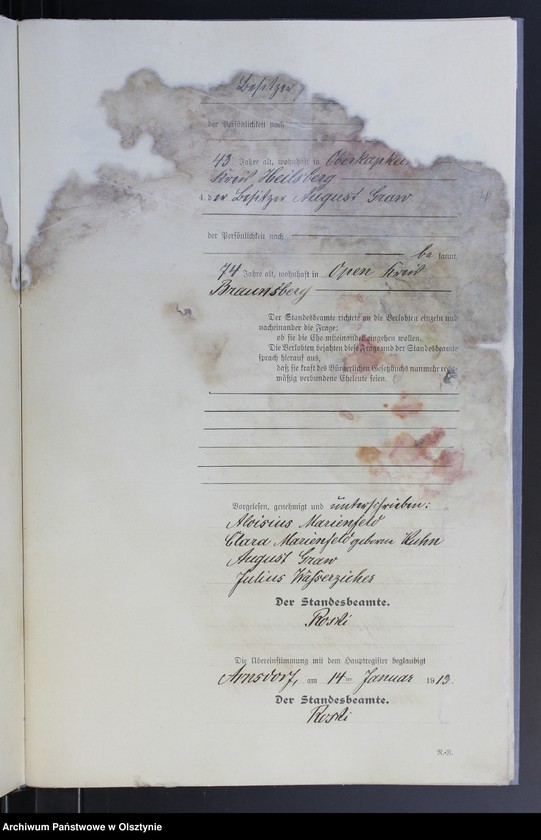 Besitzer,
der Persönlichkeit nach
43 Jahre alt, wohnhaft in Oberkapkeim
Kreis Heilsberg
der Besitzer August Graw
4
der Persönlichkeit nach
be kannt,
74 Jahre alt, wohnhaft in Open Kreis
Braunsberg
Der Standesbeamte richtete an die Verlobten einzeln und
nacheinander die Frage:
ob sie die Ehe miteinander eingehen wollen.
Die Verlobten bejahten diese Frage und der Standesbeamte
sprach hierauf aus,
daß sie kraft des Bürgerlichen Gesetzbuchs nunmehr recht-
mäßig verbundene Eheleute seien.
Vorgelesen, genehmigt und unterschrieben:
Aloisius Marienfeld
Clara Marienfeld geborene Kuhn
August Graw
Julius Wasserzieher
Der Standesbeamte.
Roski
Die Übereinstimmung mit dem Hauptregister beglaubigt
Arnsdorf, am 14ten Januar 1913.
Der Standesbeamte.
Roski
Archiwum Państwowe w Olsztynie